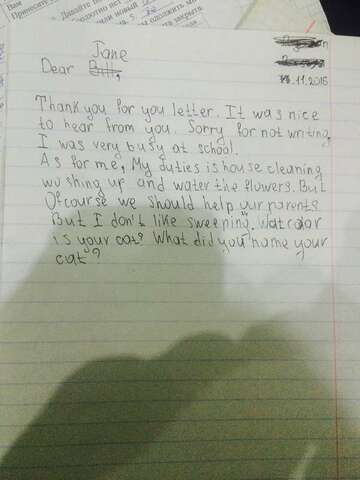 Jane
Dear
11.2015
Thank you for you letter. It was nice
to hear from you. Sorry for not writing,
I was very busy at school.
As for me, My duties is house cleaning
wo shing up and water the flowers. But
Ofcourse we should help our parents
But I don't like sweeping. Wat color
is your cat? What did you name your
cat?